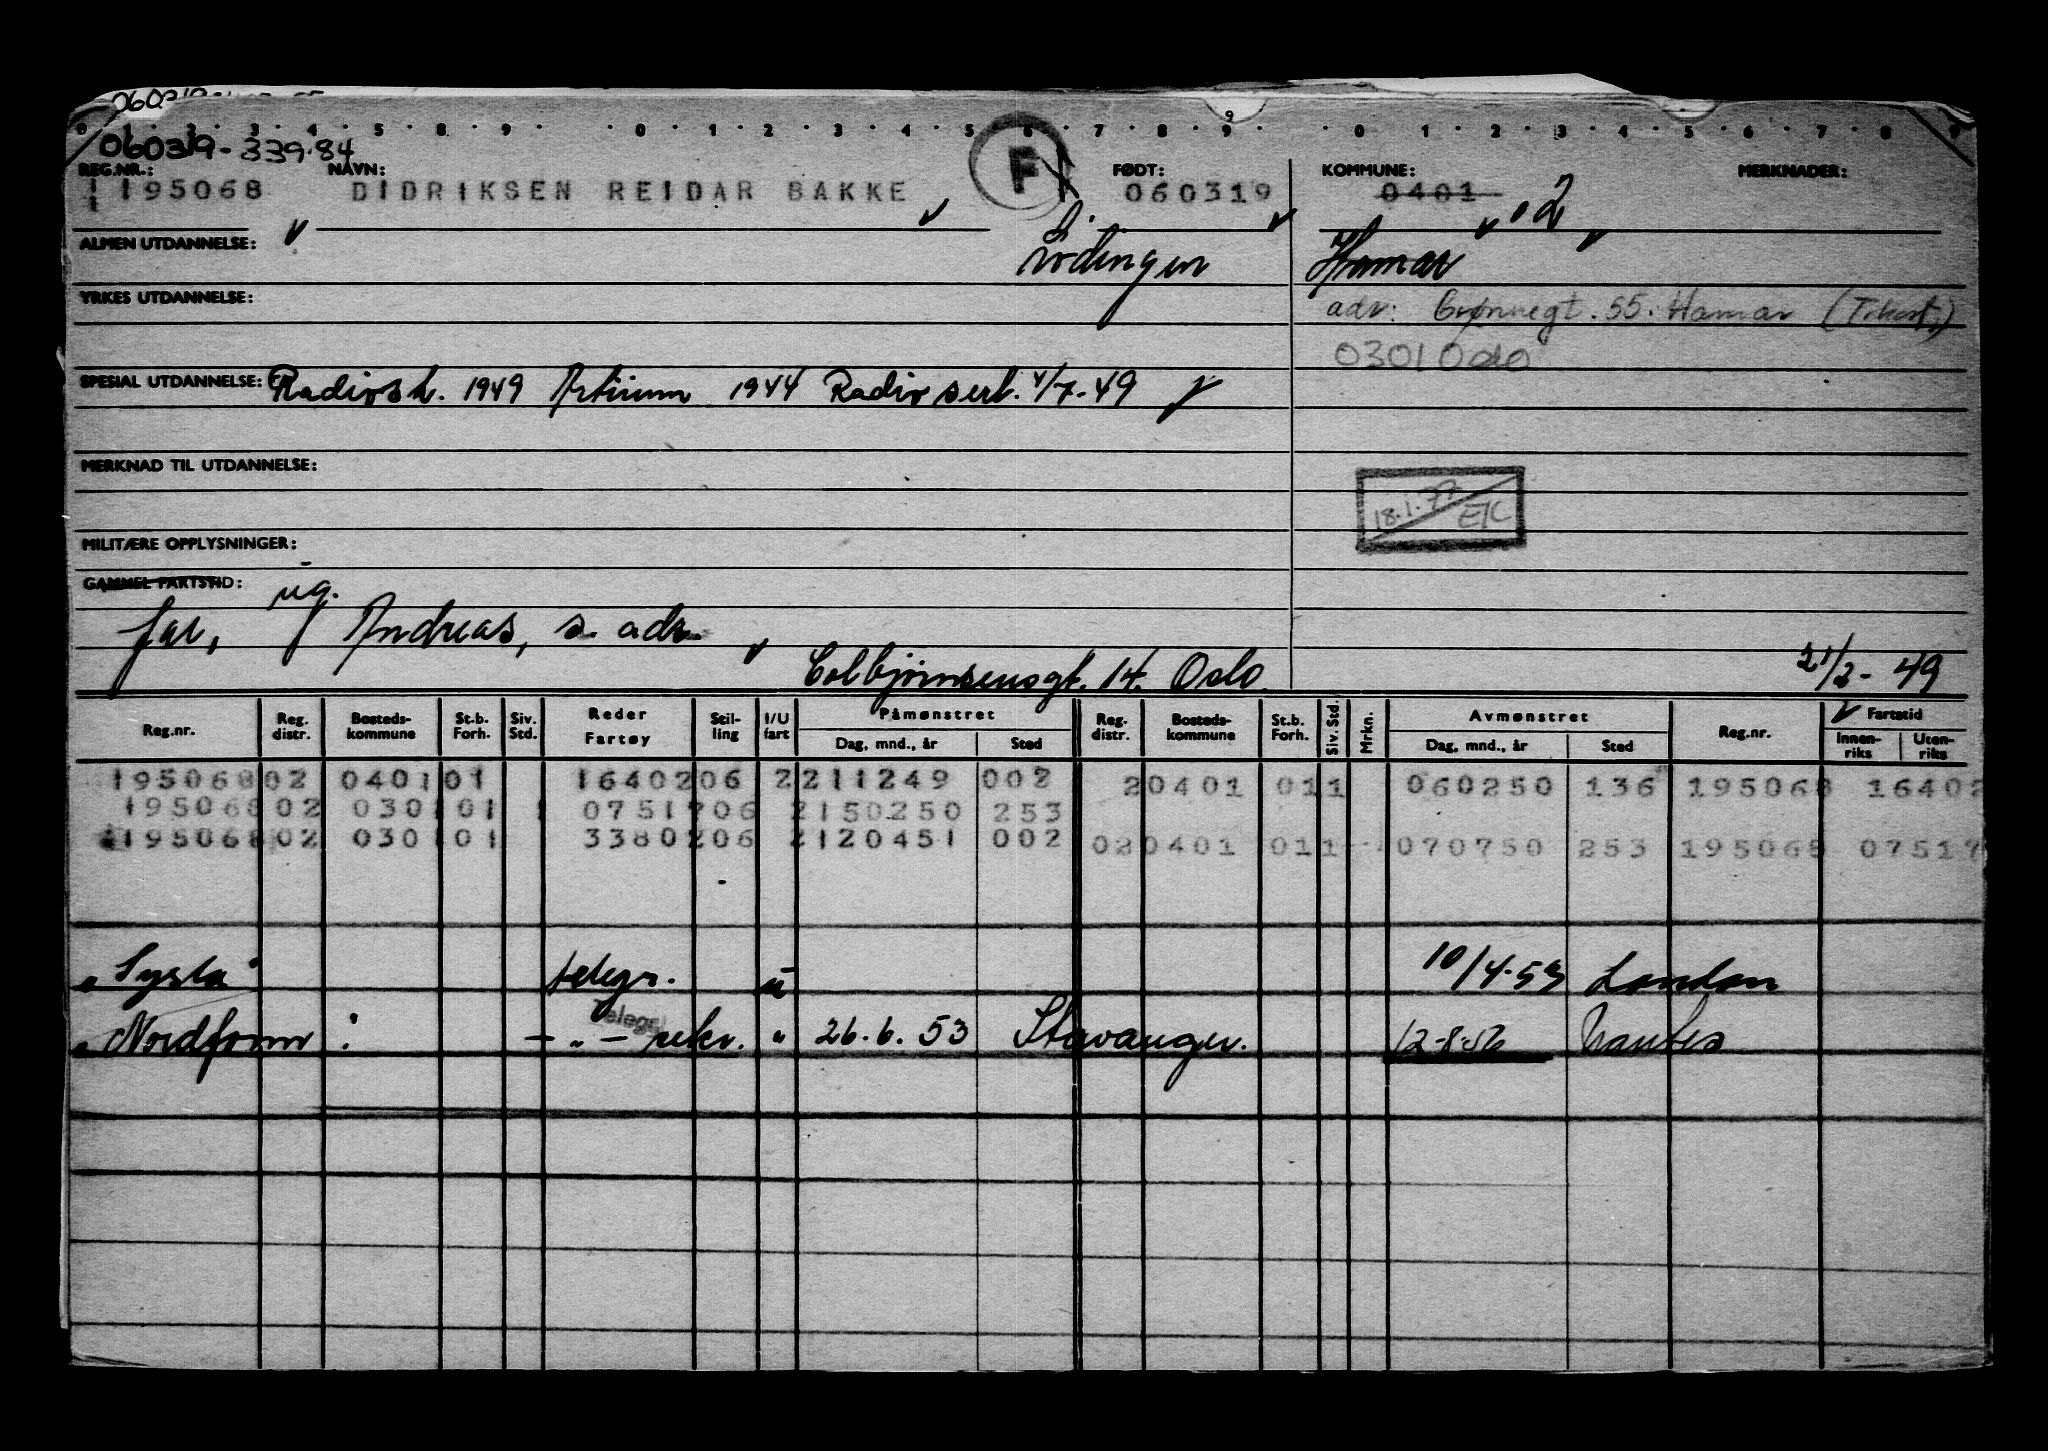 060319-339.84
REG.NR.: NAVN: FØDT: KOMMUNE: MERKNADER:
195068 DIDRIKSEN REIDAR BAKKE F 060319 0401
ALMEN UTDANNELSE: Lødingen Hamar
YRKES UTDANNELSE: adr: Grønnegt. 55. Hamar
0301 Oslo
SPESIAL UTDANNELSE: Radiosk. 1949 Artium 1944 Radiosert. 4/7-49
MERKNAD TIL UTDANNELSE:
18.1.77
MILITÆRE OPPLYSNINGER:
GAMMEL FARTSTID: ug.
far, Andreas, s. adr.
Colbjørnsensgt. 14. Oslo 21/2-49
Reg.nr. Reg. distr. Bosteds-kommune St.b. Forh. Siv. Std. Reder Fartøy Stil-ling I/U fart Påmønstret Dag, mnd., år Sted Reg. distr. Bosteds-kommune St.b. Forh. Siv. Std. Mrkn. Avmønstret Dag, mnd., år Sted Reg.nr. Fartstid Innen-riks Uten-riks
195068 02 0401 01 16402 06 2 211249 002 2 0401 01 1 060250 136 195068 16402
195068 02 0301 01 07517 06 2 150250 253
195068 02 0301 01 33802 06 2 120451 002 02 0401 01 1 070750 253 195068 07517
"Sysla" telegr. u 10/4-53 London
"Nordfonn" - " - rekv. " 26.6.53 Stavanger. 12-8-56 Nantes